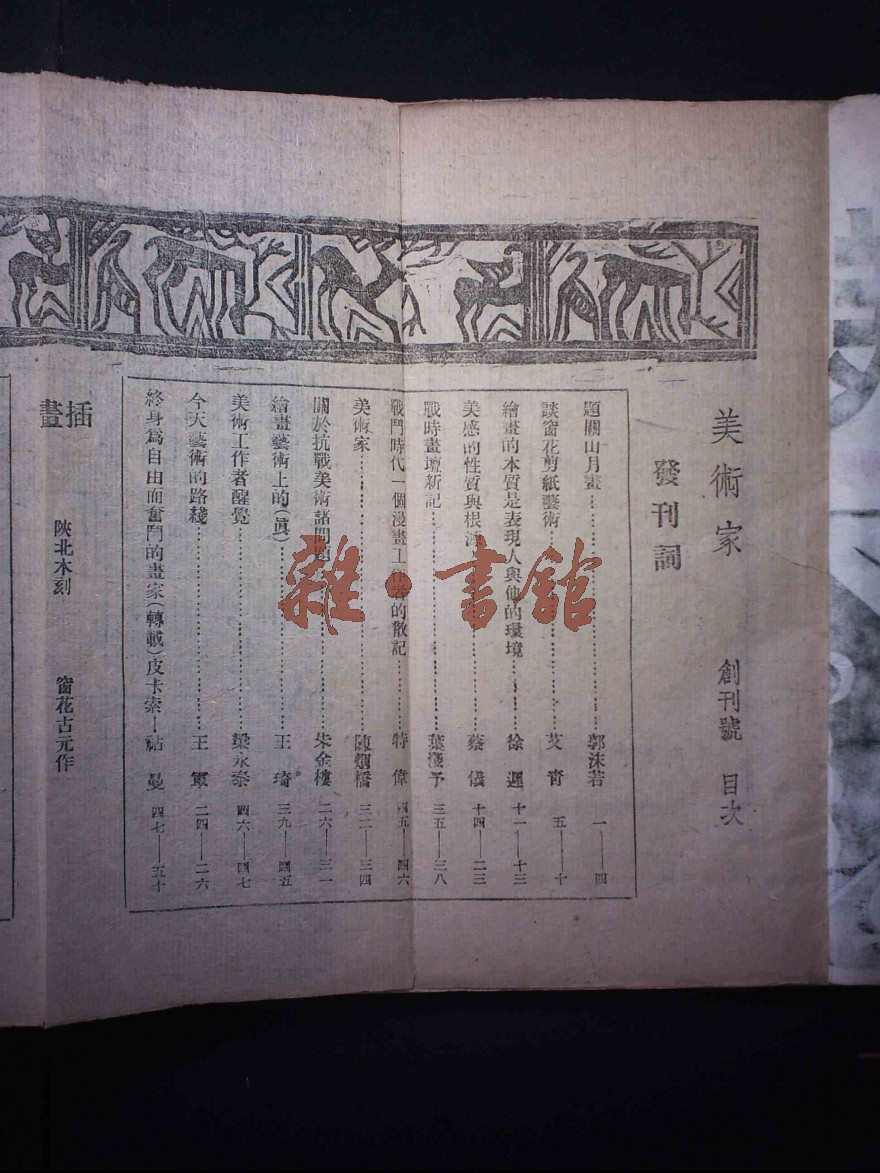 美術家 創刊號 目次
發刊詞
題關山月畫……郭沫若 一——四
談窗花剪紙藝術……艾青 五——十
繪畫的本質是表現人與他的環境……徐遲 十一——十三
美感的性質與根源……蔡儀 十四——二三
戰時畫壇新記……葉淺予 三五——三八
戰鬥時代一個漫畫工作者的散記……特偉 四五——四六
美術家……陳烟橋 三二——三四
關於抗戰美術諸問題……朱金樓 二六——三一
繪畫藝術上的(眞)……王琦 三九——四五
美術工作者醒覺……梁永泰 四六——四七
今天藝術的路綫……王軍 二四——二六
終身爲自由而奮鬥的畫家(轉載)皮卡索—祜曼 四七——五十
插畫
陝北木刻 窗花古元作
雜·書館